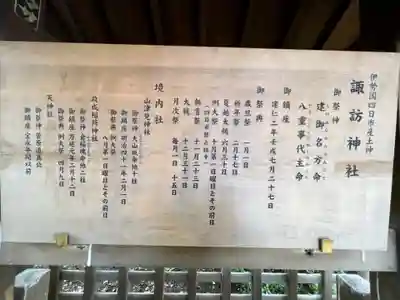 伊勢国四日市産土神
諏訪神社
御祭神
建御名方命
八重事代主命
御鎮座
建仁二年壬戌七月二十七日
御祭典
歳旦祭 一月一日
祈年祭 二月十七日
夏越大祓 六月三十日
例大祭 十月第一日曜日とその前日
新嘗祭 十一月二十三日
大祓 十二月三十一日
月次祭 毎月一日 十五日
境内社
山津見神社
御祭神 大山祇命他十柱
御鎮座 明治四十一年二月一日
御祭典 例大祭
八月第一日曜日とその前日
政成稲荷神社
御祭神 倉稲魂命他二柱
御鎮座 万延元年二月十二日
御祭典 例大祭 四月九日
天神社
御祭神 菅原道真公
御鎮座 宝永年間以前